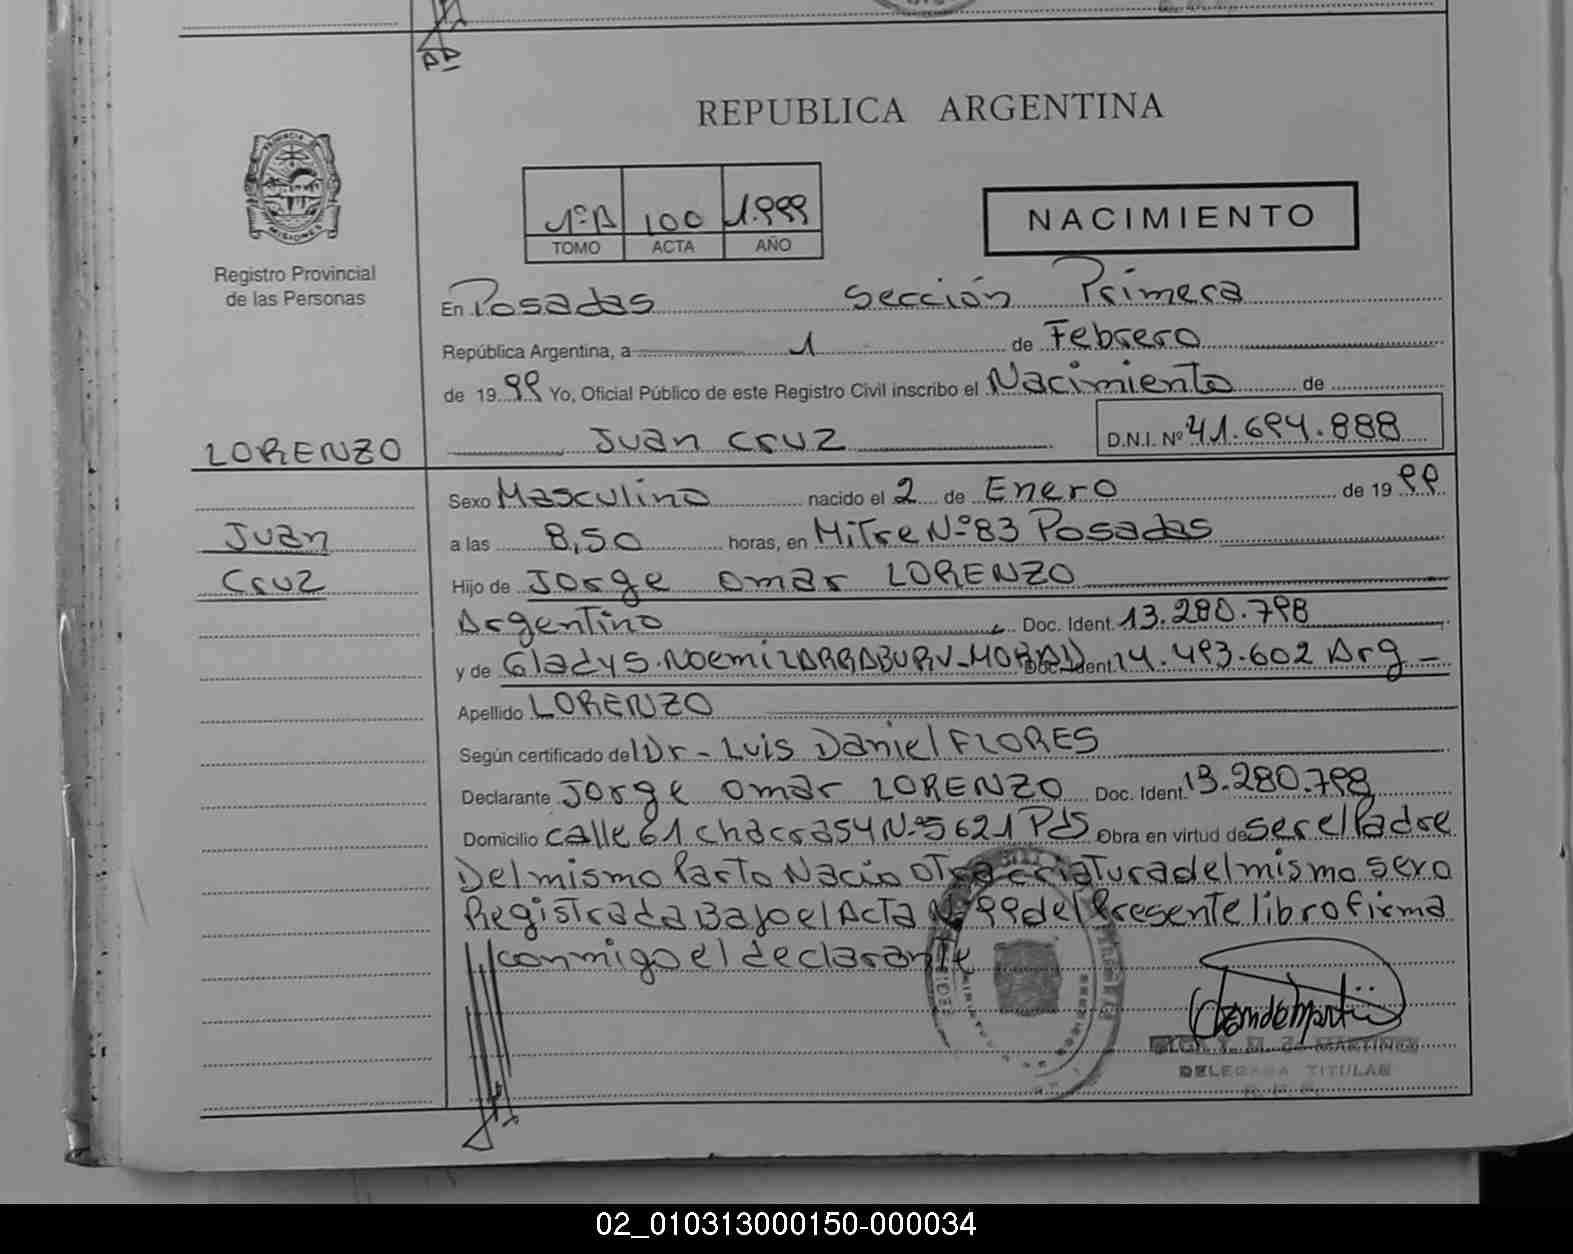 REPUBLICA ARGENTINA
Registro Provincial
de las Personas
1º A 100 1.999
TOMO ACTA AÑO
NACIMIENTO
En Posadas Sección Primera
República Argentina, a 1 de Febrero
de 1999 Yo, Oficial Público de este Registro Civil inscribo el Nacimiento de
LORENZO Juan Cruz D.N.I. Nº 41.694.888
Sexo Masculino nacido el 2 de Enero de 1999
Juan
a las 8,50 horas, en Mitre Nº 83 Posadas
Cruz
Hijo de Jorge Omar LORENZO
Argentino Doc. Ident. 13.280.798
y de Gladys Noemi Doc. Ident. 14.493.602 Arg
Apellido LORENZO
Según certificado del Dr - Luis Daniel FLORES
Declarante Jorge Omar LORENZO Doc. Ident. 13.280.798
Domicilio calle 61 chacra 54 Nº 5621 Pds Obra en virtud de ser el Padre
Del mismo Parto Nacio otra criatura del mismo sexo
Registrada Bajo el Acta Nº 99 del Presente libro firma
conmigo el declarante
MARTINEZ
DELEGADA TITULAR
02_010313000150-000034